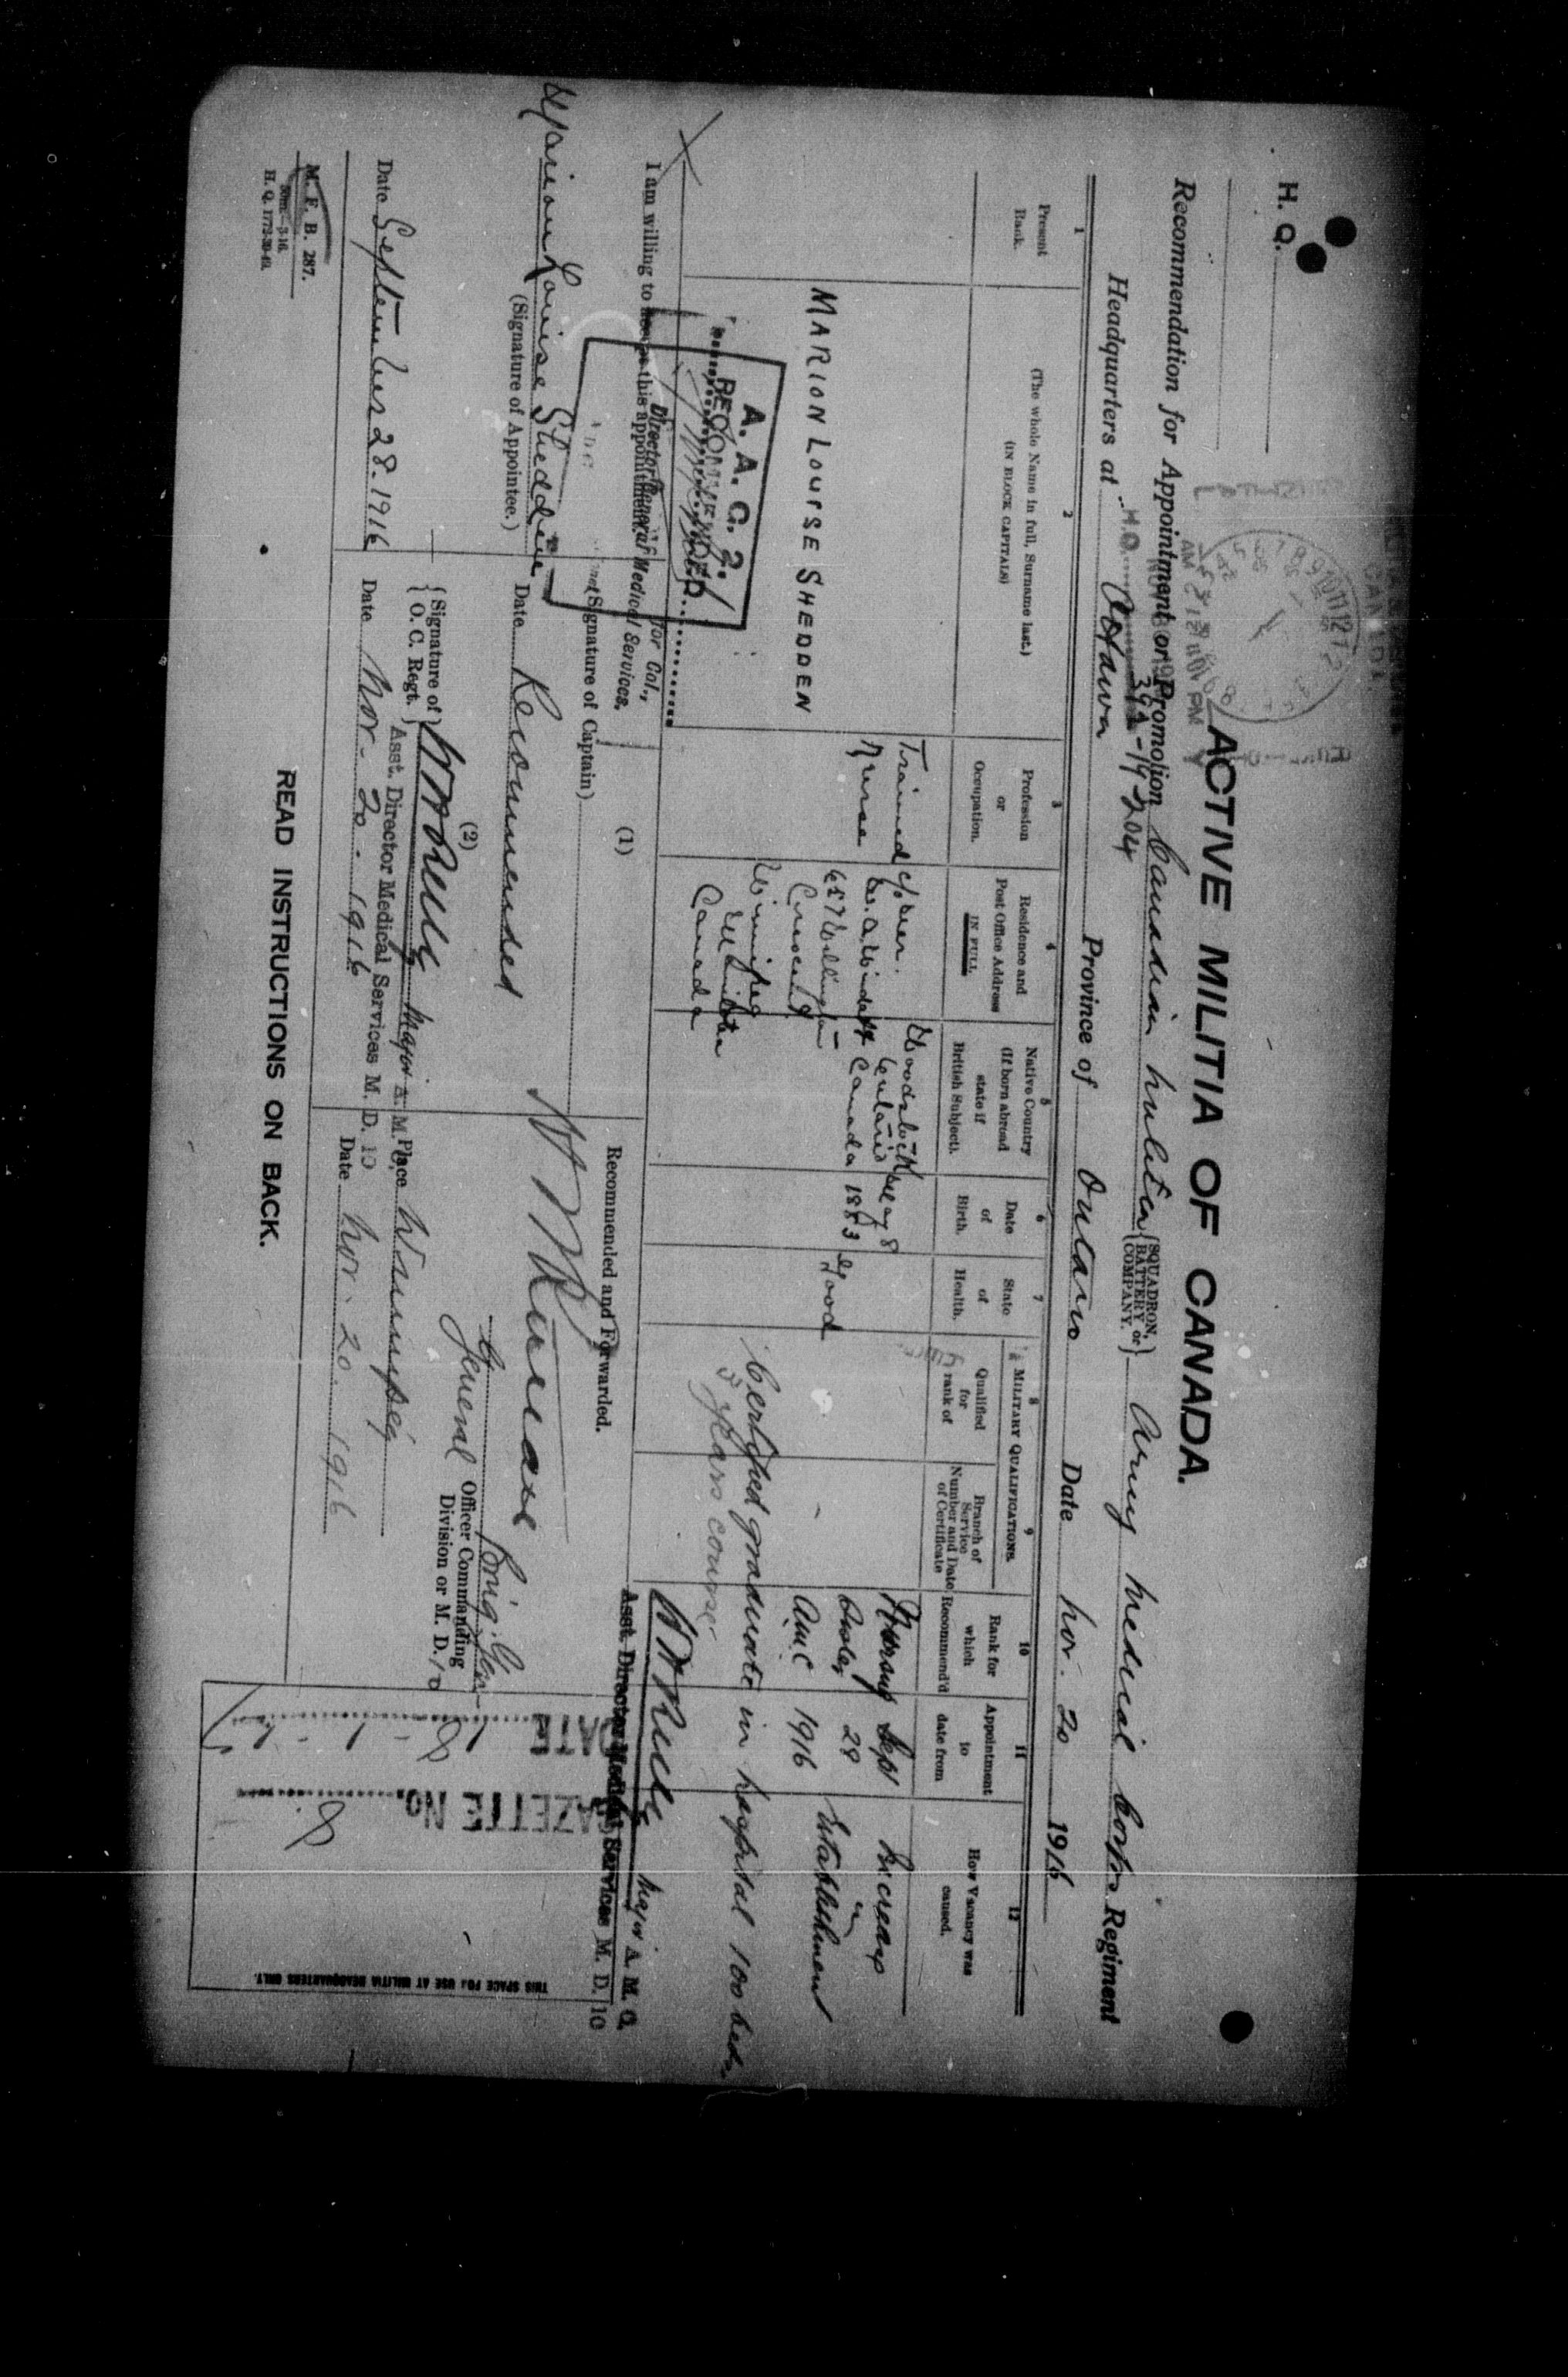 H. Q.
ACTIVE MILITIA OF CANADA.
Recommendation for Appointment or Promotion Canadian Militia {SQUADRON, BATTERY or COMPANY.} Army Medical Corps Regiment
Headquarters at Ottawa Province of Ontario Date Nov. 20 1916
1
Present
Rank.
2
(The whole Name in full, Surname last.)
(IN BLOCK CAPITALS)
3
Profession
or
Occupation.
4
Residence and
Post Office Address
IN FULL
5
Native Country
(If born abroad
state if
British Subject).
6
Date
of
Birth.
7
State
of
Health.
MILITARY QUALIFICATIONS
8
Qualified
for
rank of
9
Branch of
Service
Number and Date
of Certificate
10
Rank for
which
Recommend'd
11
Appointment
to
date from
12
How Vacancy was
caused.
MARION LOUISE SHEDDEN
Trained
Nurse
Winnipeg
Manitoba
Canada
Woodstock
Ontario
Canada
May 8
1883
Good
Nursing
Sister
AMC
Sept
29
1916
Increase
in
Establishment
Certified graduate in hospital 100 beds
3 years course.
A. A. G. 2.
RECOMMENDED
for Col.,
Director General Medical Services.
Major A. M. C.
Asst. Director Medical Services M. D. 10
I am willing to accept this appointment.
Marion Louise Shedden
(Signature of Appointee.)
Date September 28. 1916
(1)
(Signature of Captain)
Date Recommended
(2)
{Signature of O. C. Regt.} Major A. M. C.
Asst. Director Medical Services M. D. 10
Date Nov. 20. 1916
Recommended and Forwarded.
Brig. Gen.
General Officer Commanding
Division or M. D. 10
Place Winnipeg
Date Nov. 20. 1916
DATE
GAZETTE No. 8
THIS SPACE FOR USE AT MILITIA HEADQUARTERS ONLY.
M. F. B. 287.
H. Q. 1772-39-49.
READ INSTRUCTIONS ON BACK.